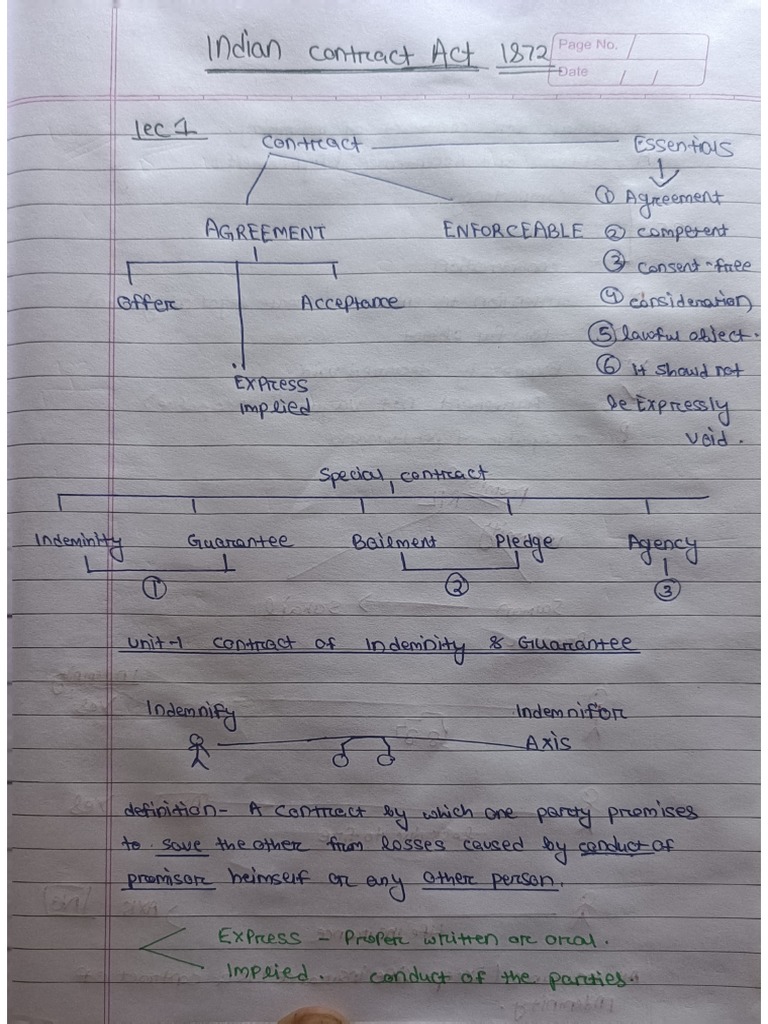 Indian contract Act 1872
Page No.
Date
lec 1
contract
Essentials
① Agreement
AGREEMENT
ENFORCEABLE
② competent
③ consent-free
Offer
Acceptance
④ consideration
⑤ lawful object.
Express
implied
⑥ It should not
be Expressly
void.
Special contract
Indeminity
Guarantee
Bailment
Pledge
Agency
①
②
③
unit-1 contract of Indeminity & Guarantee
Indemnify
Indemnifor
Axis
definition - A contract by which one party promises
to save the other from losses caused by conduct of
promisor heimself or any other person.
Express - Proper written or oral.
Implied. conduct of the parties.